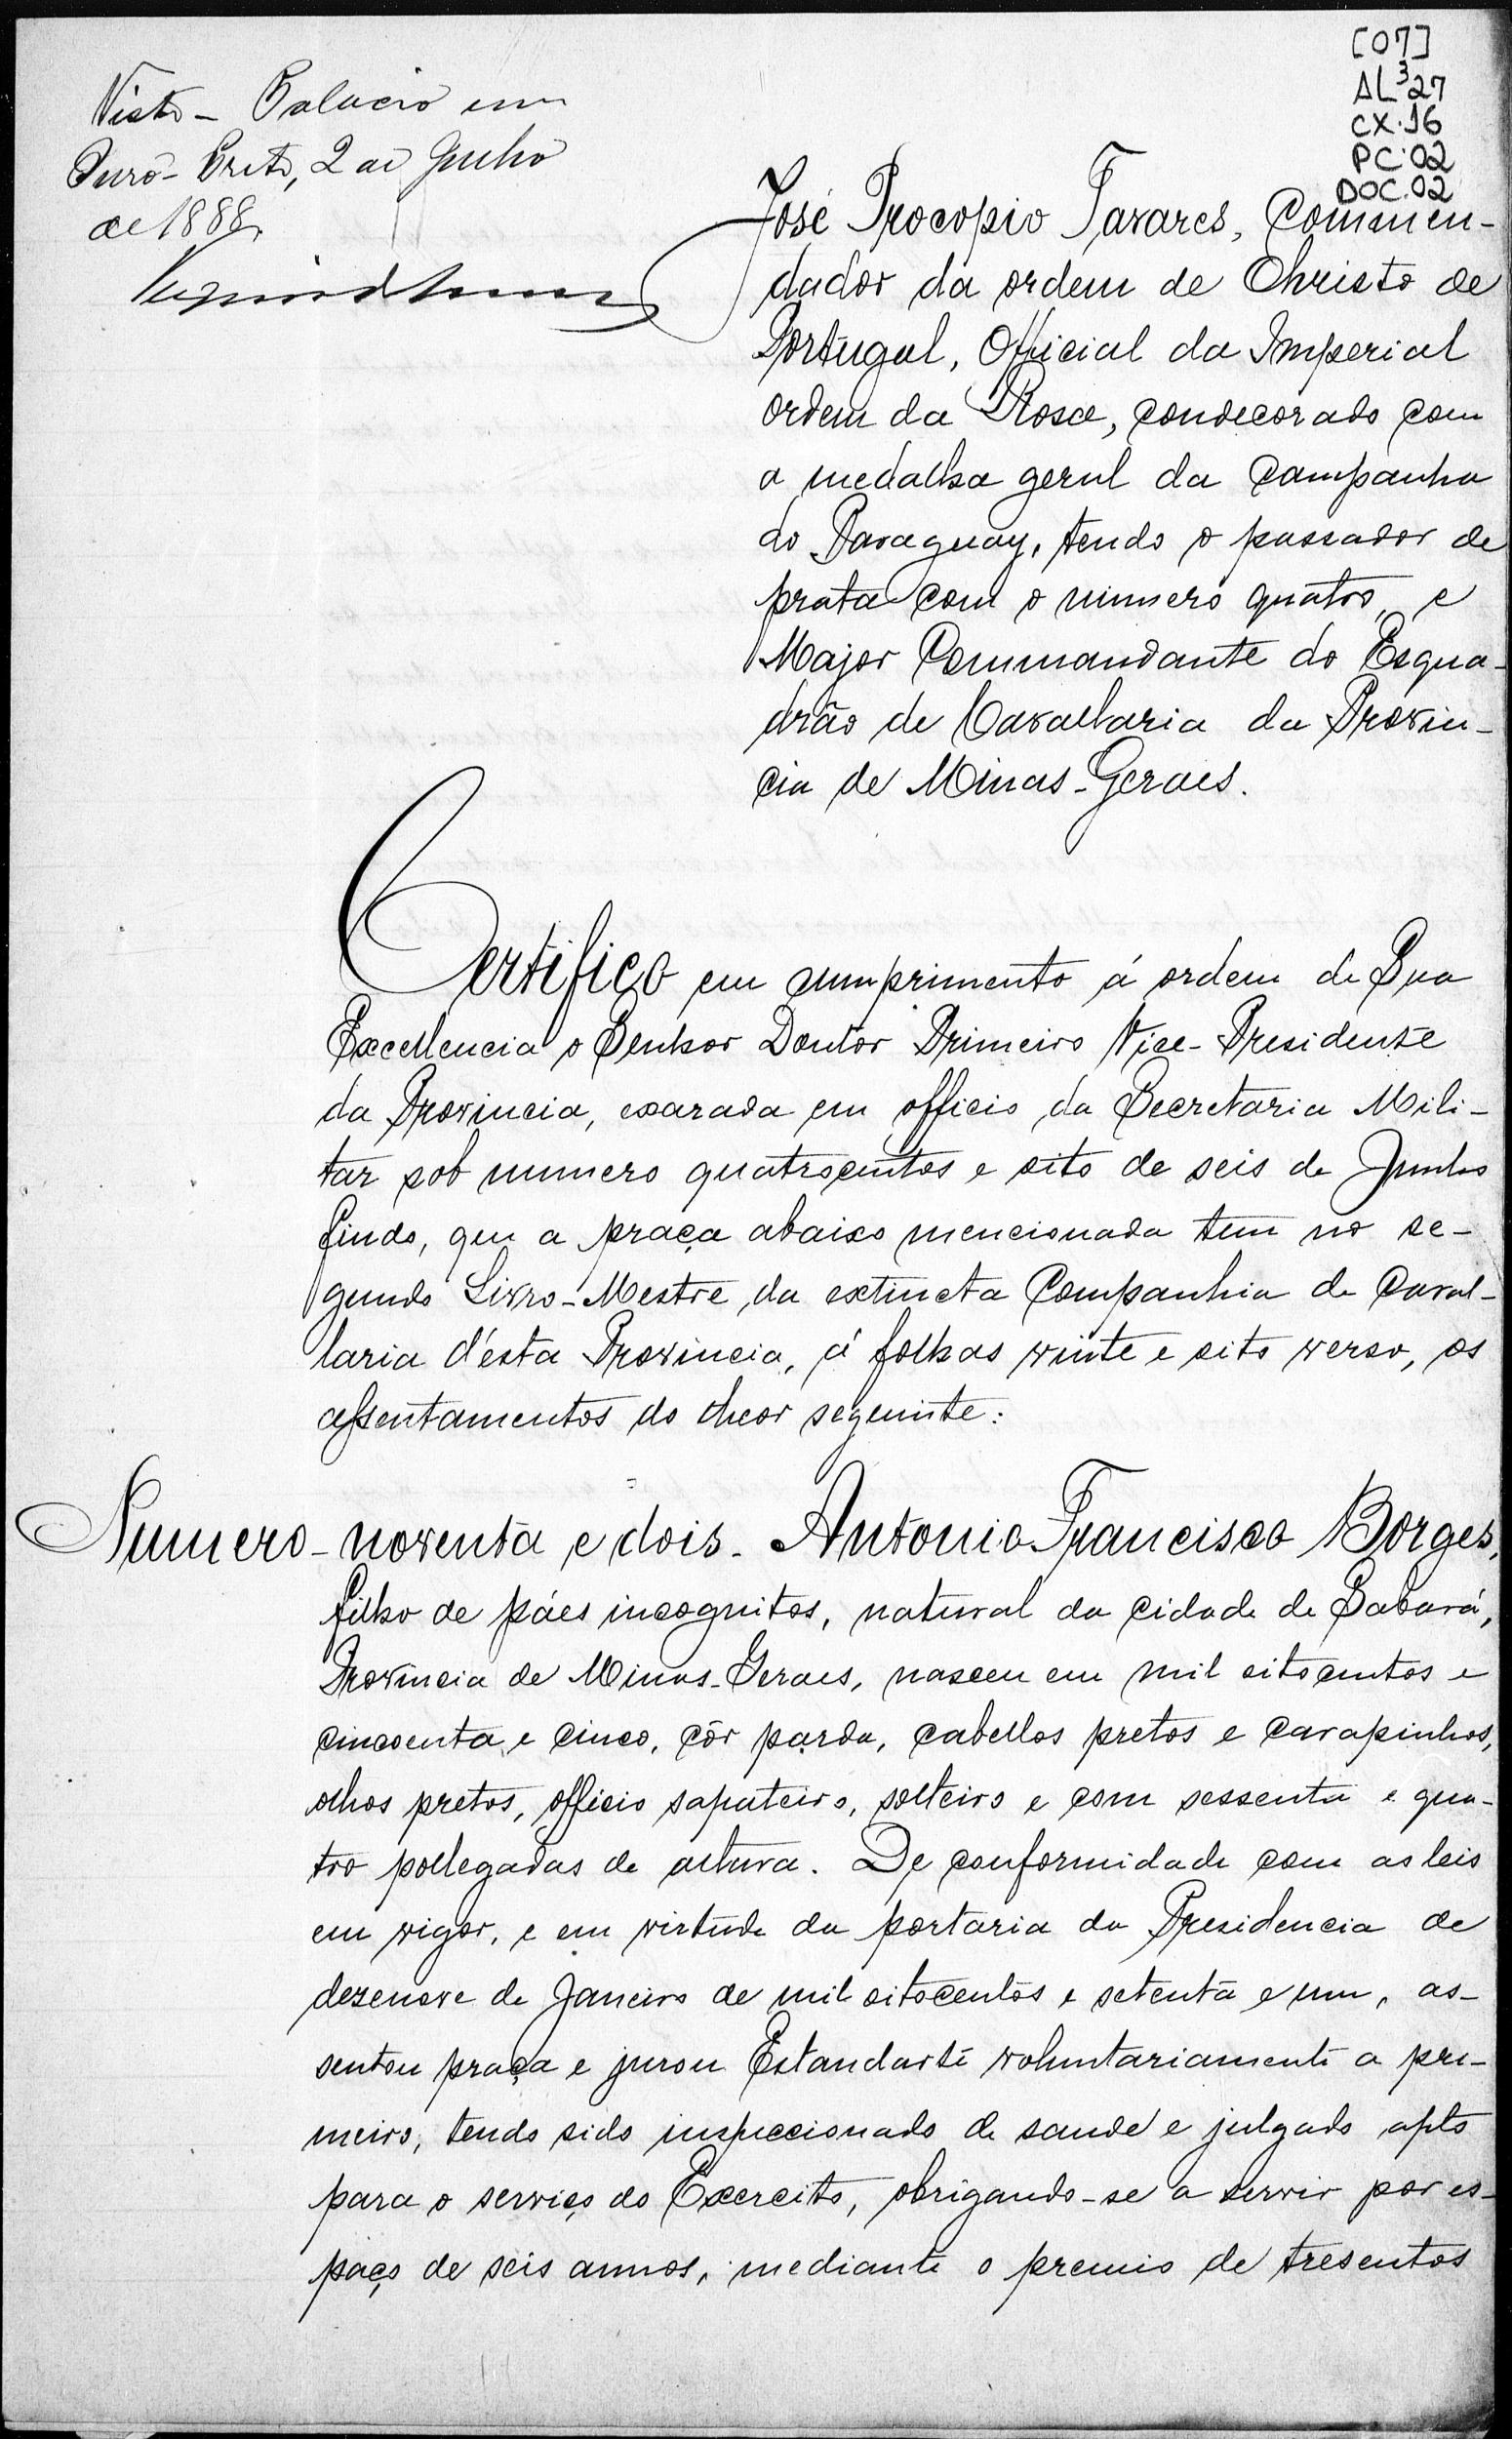 [07]
AL³27
CX.16
PC.02
DOC.02
Visto - Palacio em
Ouro-Preto, 2 de Julho
de 1888.
José Procopio Tavares, Commen-
dador da ordem de Christo de
Portugal, Official da Imperial
Ordem da Rosa, condecorado com
a medalha geral da Campanha
do Paraguay, tendo o passador de
prata com o numero quatro, e
Major Commandante do Esqua-
drão de Cavallaria da Provin-
cia de Minas-Geraes.
Certifico em cumprimento á ordem de Sua
Excellencia o Senhor Doutor Primeiro Vice-Presidente
da Provincia, exarada em officio da Secretaria Mili-
tar sob numero quatrocentos e oito de seis de Junho
findo, que a praça abaixo mencionada tem no se-
gundo Livro-Mestre, da extincta Companhia de Caval-
laria d'ésta Provincia, á folhas vinte e oito verso, os
assentamentos do theor seguinte:
Numero-noventa e dois. Antonio Francisco Borges,
filho de páes incognitos, natural da cidade de Sabará,
Provincia de Minas-Geraes, nasceu em mil oitocentos e
cincoenta e cinco, côr parda, cabellos pretos e carapinhos,
olhos pretos, officio sapateiro, solteiro e com sessenta e qua-
tro pollegadas de altura. De conformidade com as leis
em vigor, e em virtude da portaria da Presidencia de
dezenove de Janeiro de mil oitocentos e setenta e um, as-
sentou praça e jurou Estandarte voluntariamente a pri-
meiro, tendo sido inspeccionado de saude e julgado apto
para o serviço do Exercito, obrigando-se a servir por es-
paço de seis annos, mediante o premio de tresentos